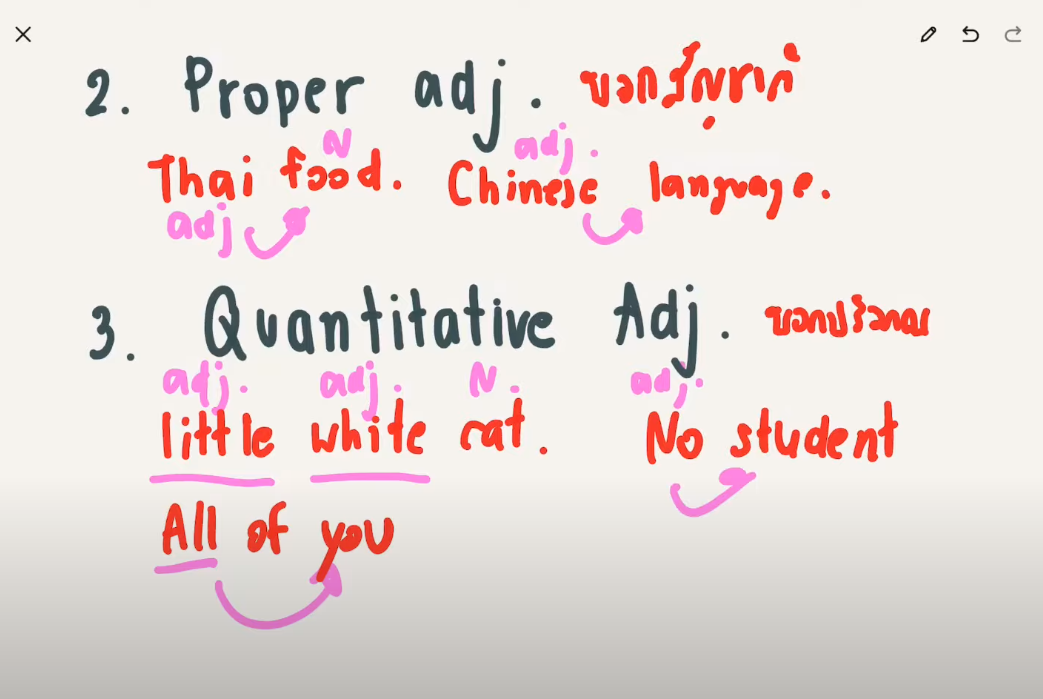 2. Proper adj. บอกสัญชาติ
N adj.
Thai food. Chinese language.
adj
3. Quantitative Adj. บอกปริมาณ
adj. adj. N. adj.
little white cat. No student
All of you